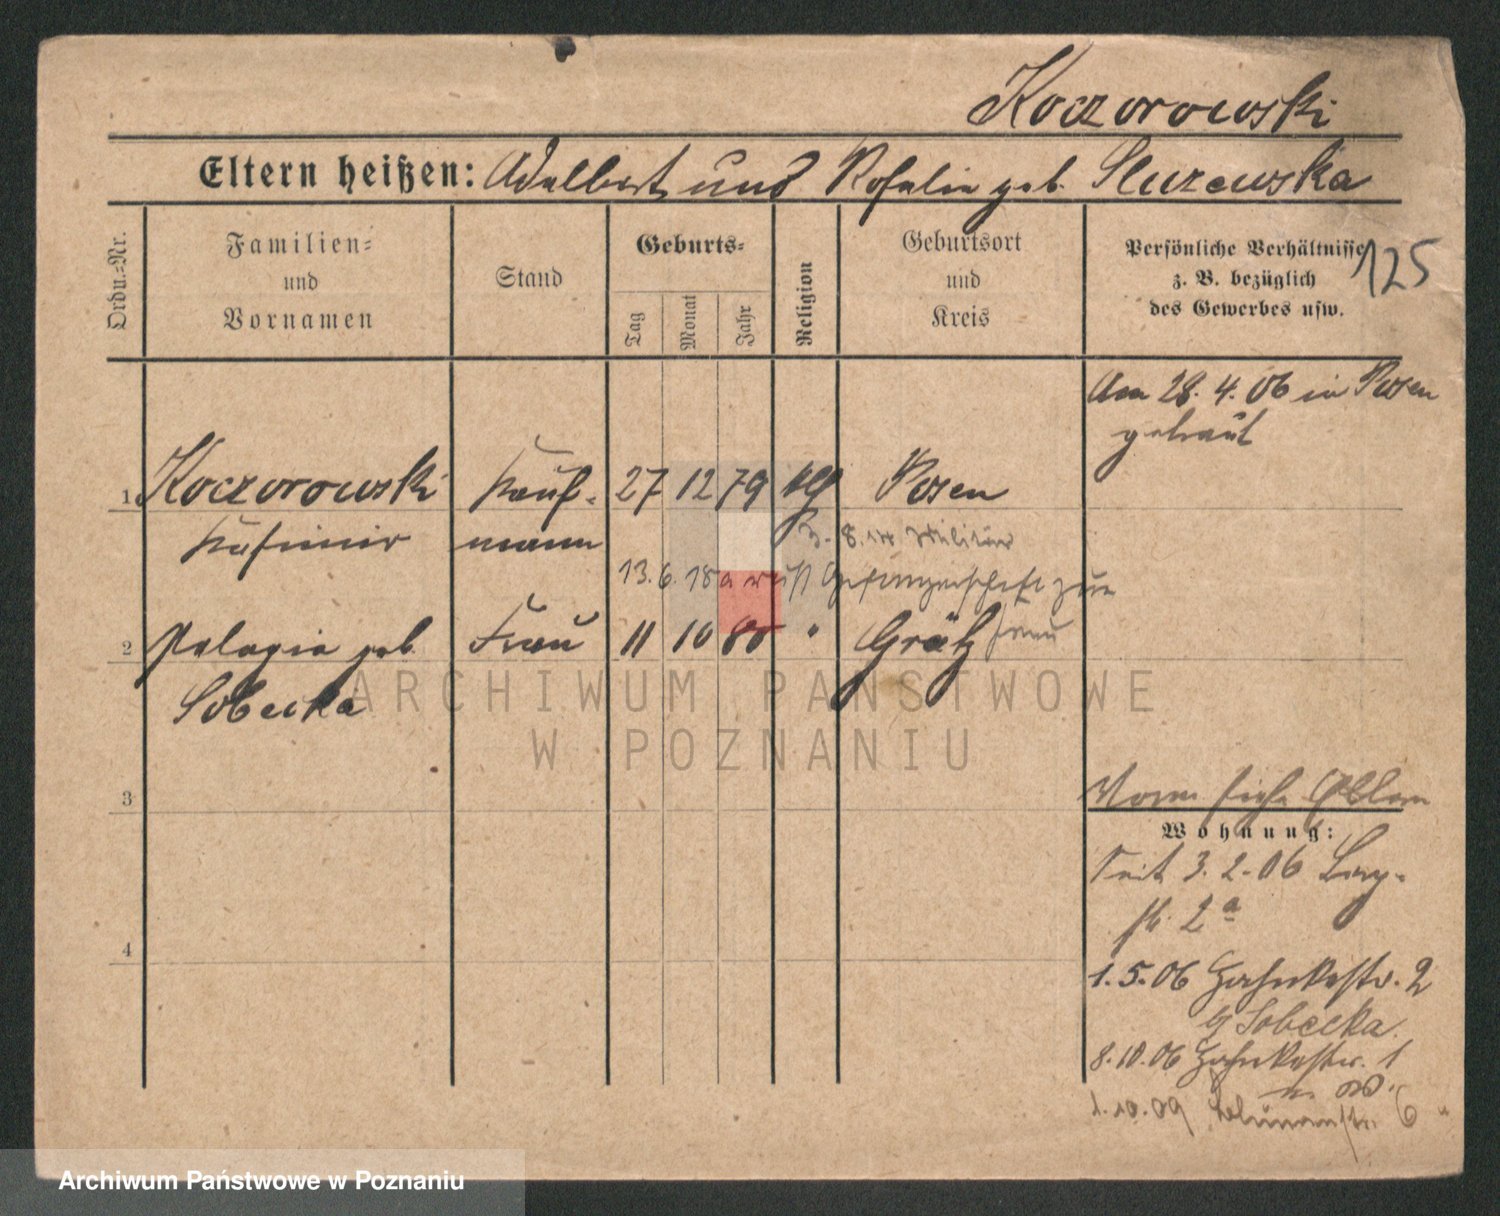 Koczorowski
Eltern heißen: Adalbert und Rosalie geb. Sluzewska
Ordn.-Nr.
Familien-
und
Vornamen
Stand
Geburts-
Tag
Monat
Jahr
Religion
Geburtsort
und
Kreis
Persönliche Verhältnisse
z. B. bezüglich
des Gewerbes usw.
125
Am 28. 4. 06 in Posen
getraut
1 Koczorowski Kauf- 27 12 79 klg Posen
Kasimir mann
3. 8. 14 Militär
13. 6. 18 a Gefangenschaft zur
2 Pelagia geb. Frau 11 10 80 " Grätz Frau
Sobecka
3
4
siehe
Wohnung:
Seit 3. 2. 06
2a
1. 5. 06 2
b/ Sobecka.
8. 10. 06 1
1. 10. 09 6
ARCHIWUM PAŃSTWOWE
W POZNANIU
Archiwum Państwowe w Poznaniu